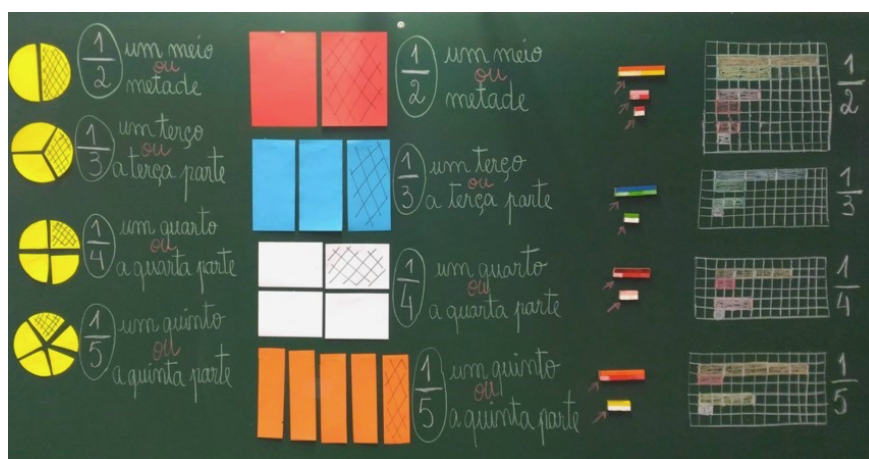 1/2 um meio
ou
metade
1/3 um terço
ou
a terça parte
1/4 um quarto
ou
a quarta parte
1/5 um quinto
ou
a quinta parte
1/2 um meio
ou
metade
1/3 um terço
ou
a terça parte
1/4 um quarto
ou
a quarta parte
1/5 um quinto
ou
a quinta parte
1/2
1/3
1/4
1/5